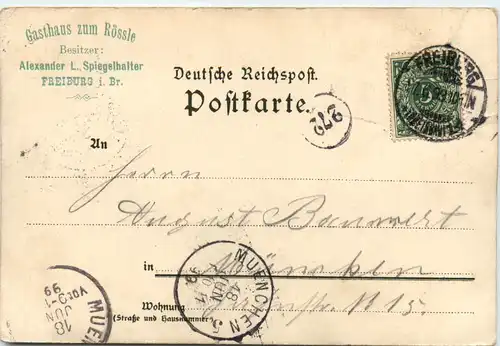 Gasthaus zum Rössle
Besitzer:
Alexander L. Spiegelhalter
FREIBURG i. Br.
Deutsche Reichspost.
Postkarte.
FREIBURG
272
An
Herrn
August Banwert
in München
MUENCHEN 5
18 JUN
99
Wohnung
(Straße und Hausnummer)
N 15.
MUEN
18
JUN
Vorm 9-1
99